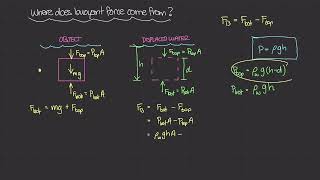 Where does buoyant force come from?
OBJECT
F_top = P_top A
mg
F_bot = P_bot A
F_bot = mg + F_top
DISPLACED WATER
F_top = P_top A
h
d
F_bot = P_bot A
F_B = F_bot - F_top
= P_bot A - P_top A
= ρ_w g h A -
F_B = F_bot - F_top
P = ρgh
P_top = ρ_w g(h-d)
P_bot = ρ_w g h